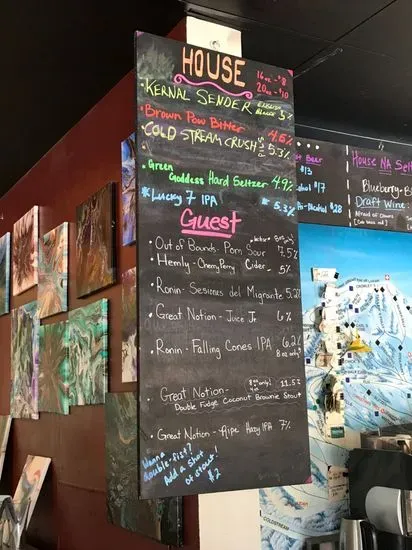 HOUSE
16oz - $8
20oz - $10
• KERNAL SENDER ENGLISH 5%
Brown Pow Bitter 4.6%
• COLD STREAM CRUSH 5.3%
• Green
Goddess Hard Seltzer 4.9%
Lucky 7 IPA 5.3%
Guest
• Out of Bounds - Pom Sour 7.5%
• Hemly - Cherry Perry Cider - 5%
• Ronin - Sesiones del Migrante 5.2%
• Great Notion - Juice Jr. 6%
• Ronin - Falling Cones IPA 6.2%
8oz only
• Great Notion - 8oz only! 11.5%
Double Fudge Coconut Brownie Stout
• Great Notion - Ripe Hazy IPA 7%
Wanna
double-fist?
Add a shot
of stout!
$2
Beer
$13
$17
$28
House NA Selt
Blueberry - B
Draft Wine
COLDSTREAM